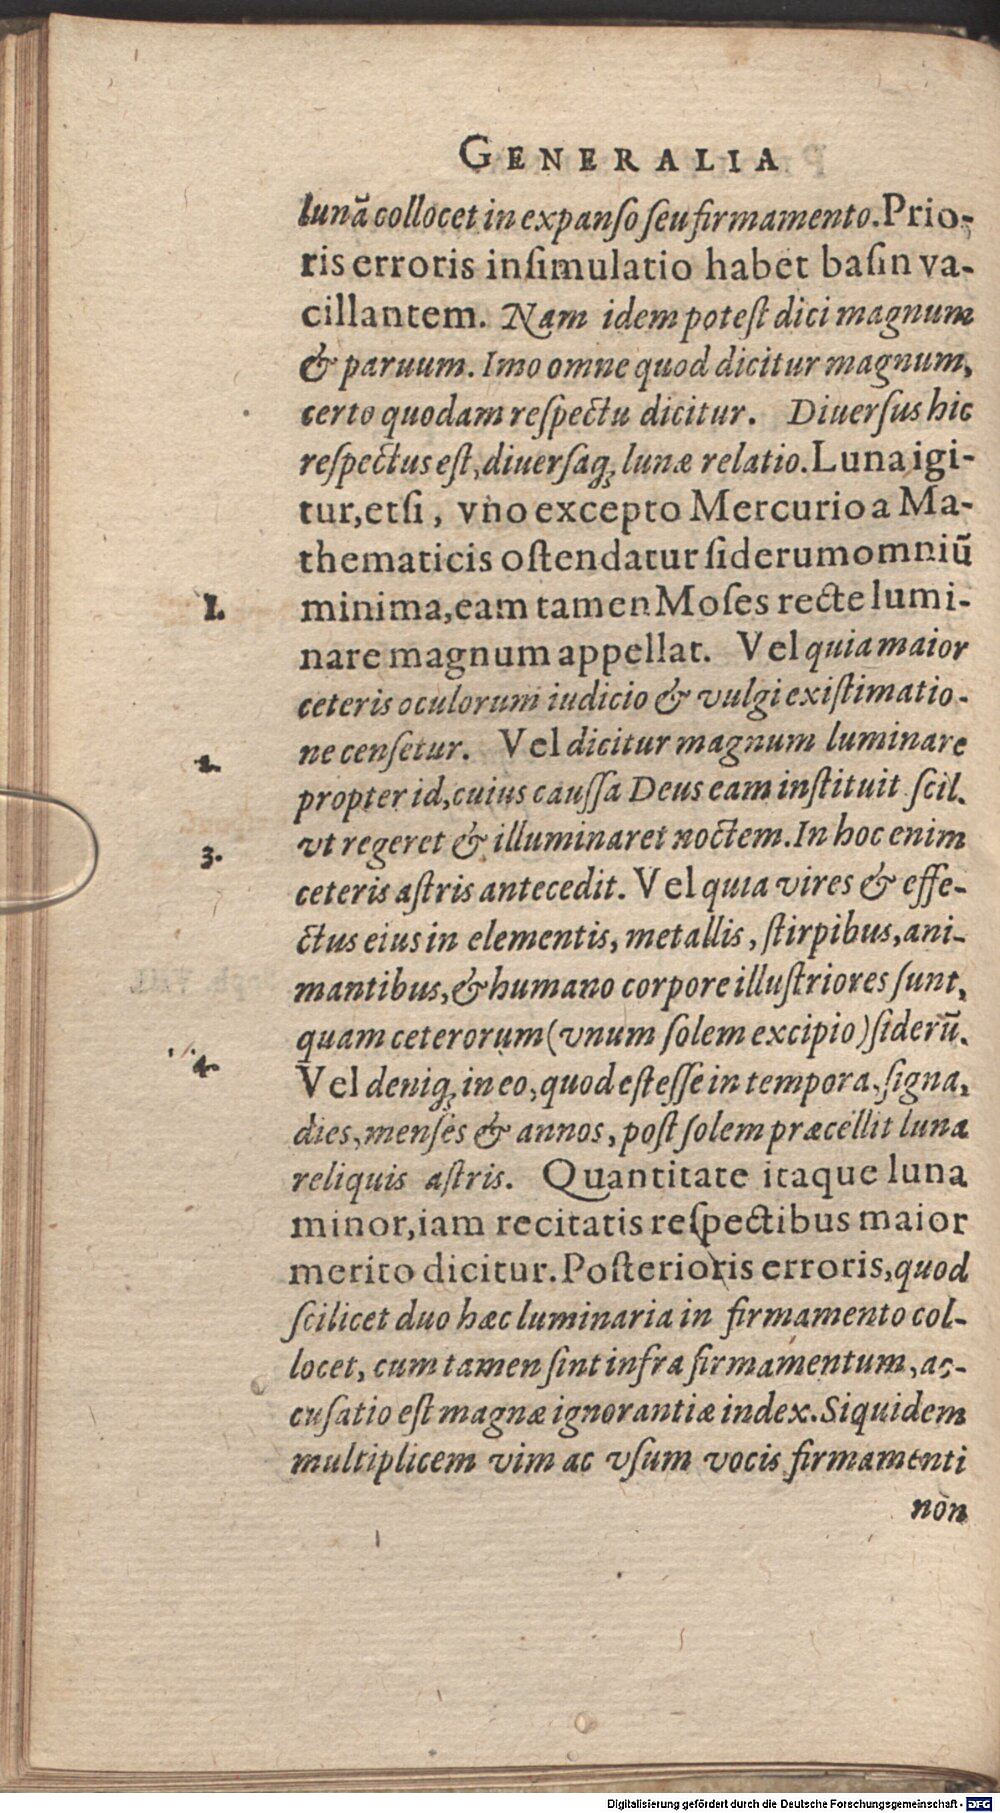 GENERALIA
lunã collocet in expanso seu firmamento. Prio-
ris erroris insimulatio habet basin va-
cillantem. Nam idem potest dici magnum
& paruum. Imo omne quod dicitur magnum,
certo quodam respectu dicitur. Diuersus hic
respectus est, diuersaq; lunæ relatio. Luna igi-
tur, etsi, vno excepto Mercurio a Ma-
thematicis ostendatur siderum omniũ
I. minima, eam tamen Moses recte lumi-
nare magnum appellat. Vel quia maior
ceteris oculorum iudicio & vulgi existimatio-
2. ne censetur. Vel dicitur magnum luminare
propter id, cuius caussa Deus eam instituit scil.
vt regeret & illuminaret noctem. In hoc enim
3. ceteris astris antecedit. Vel quia vires & effe-
ctus eius in elementis, metallis, stirpibus, ani-
mantibus, & humano corpore illustriores sunt,
quam ceterorum (vnum solem excipio) siderũ.
4. Vel deniq; in eo, quod est esse in tempora, signa,
dies, menses & annos, post solem præcellit luna
reliquis astris. Quantitate itaque luna
minor, iam recitatis respectibus maior
merito dicitur. Posterioris erroris, quod
scilicet duo hæc luminaria in firmamento col-
locet, cum tamen sint infra firmamentum, ac-
cusatio est magnæ ignorantiæ index. Siquidem
multiplicem vim ac vsum vocis firmamenti
non
Digitalisierung gefördert durch die Deutsche Forschungsgemeinschaft - DFG